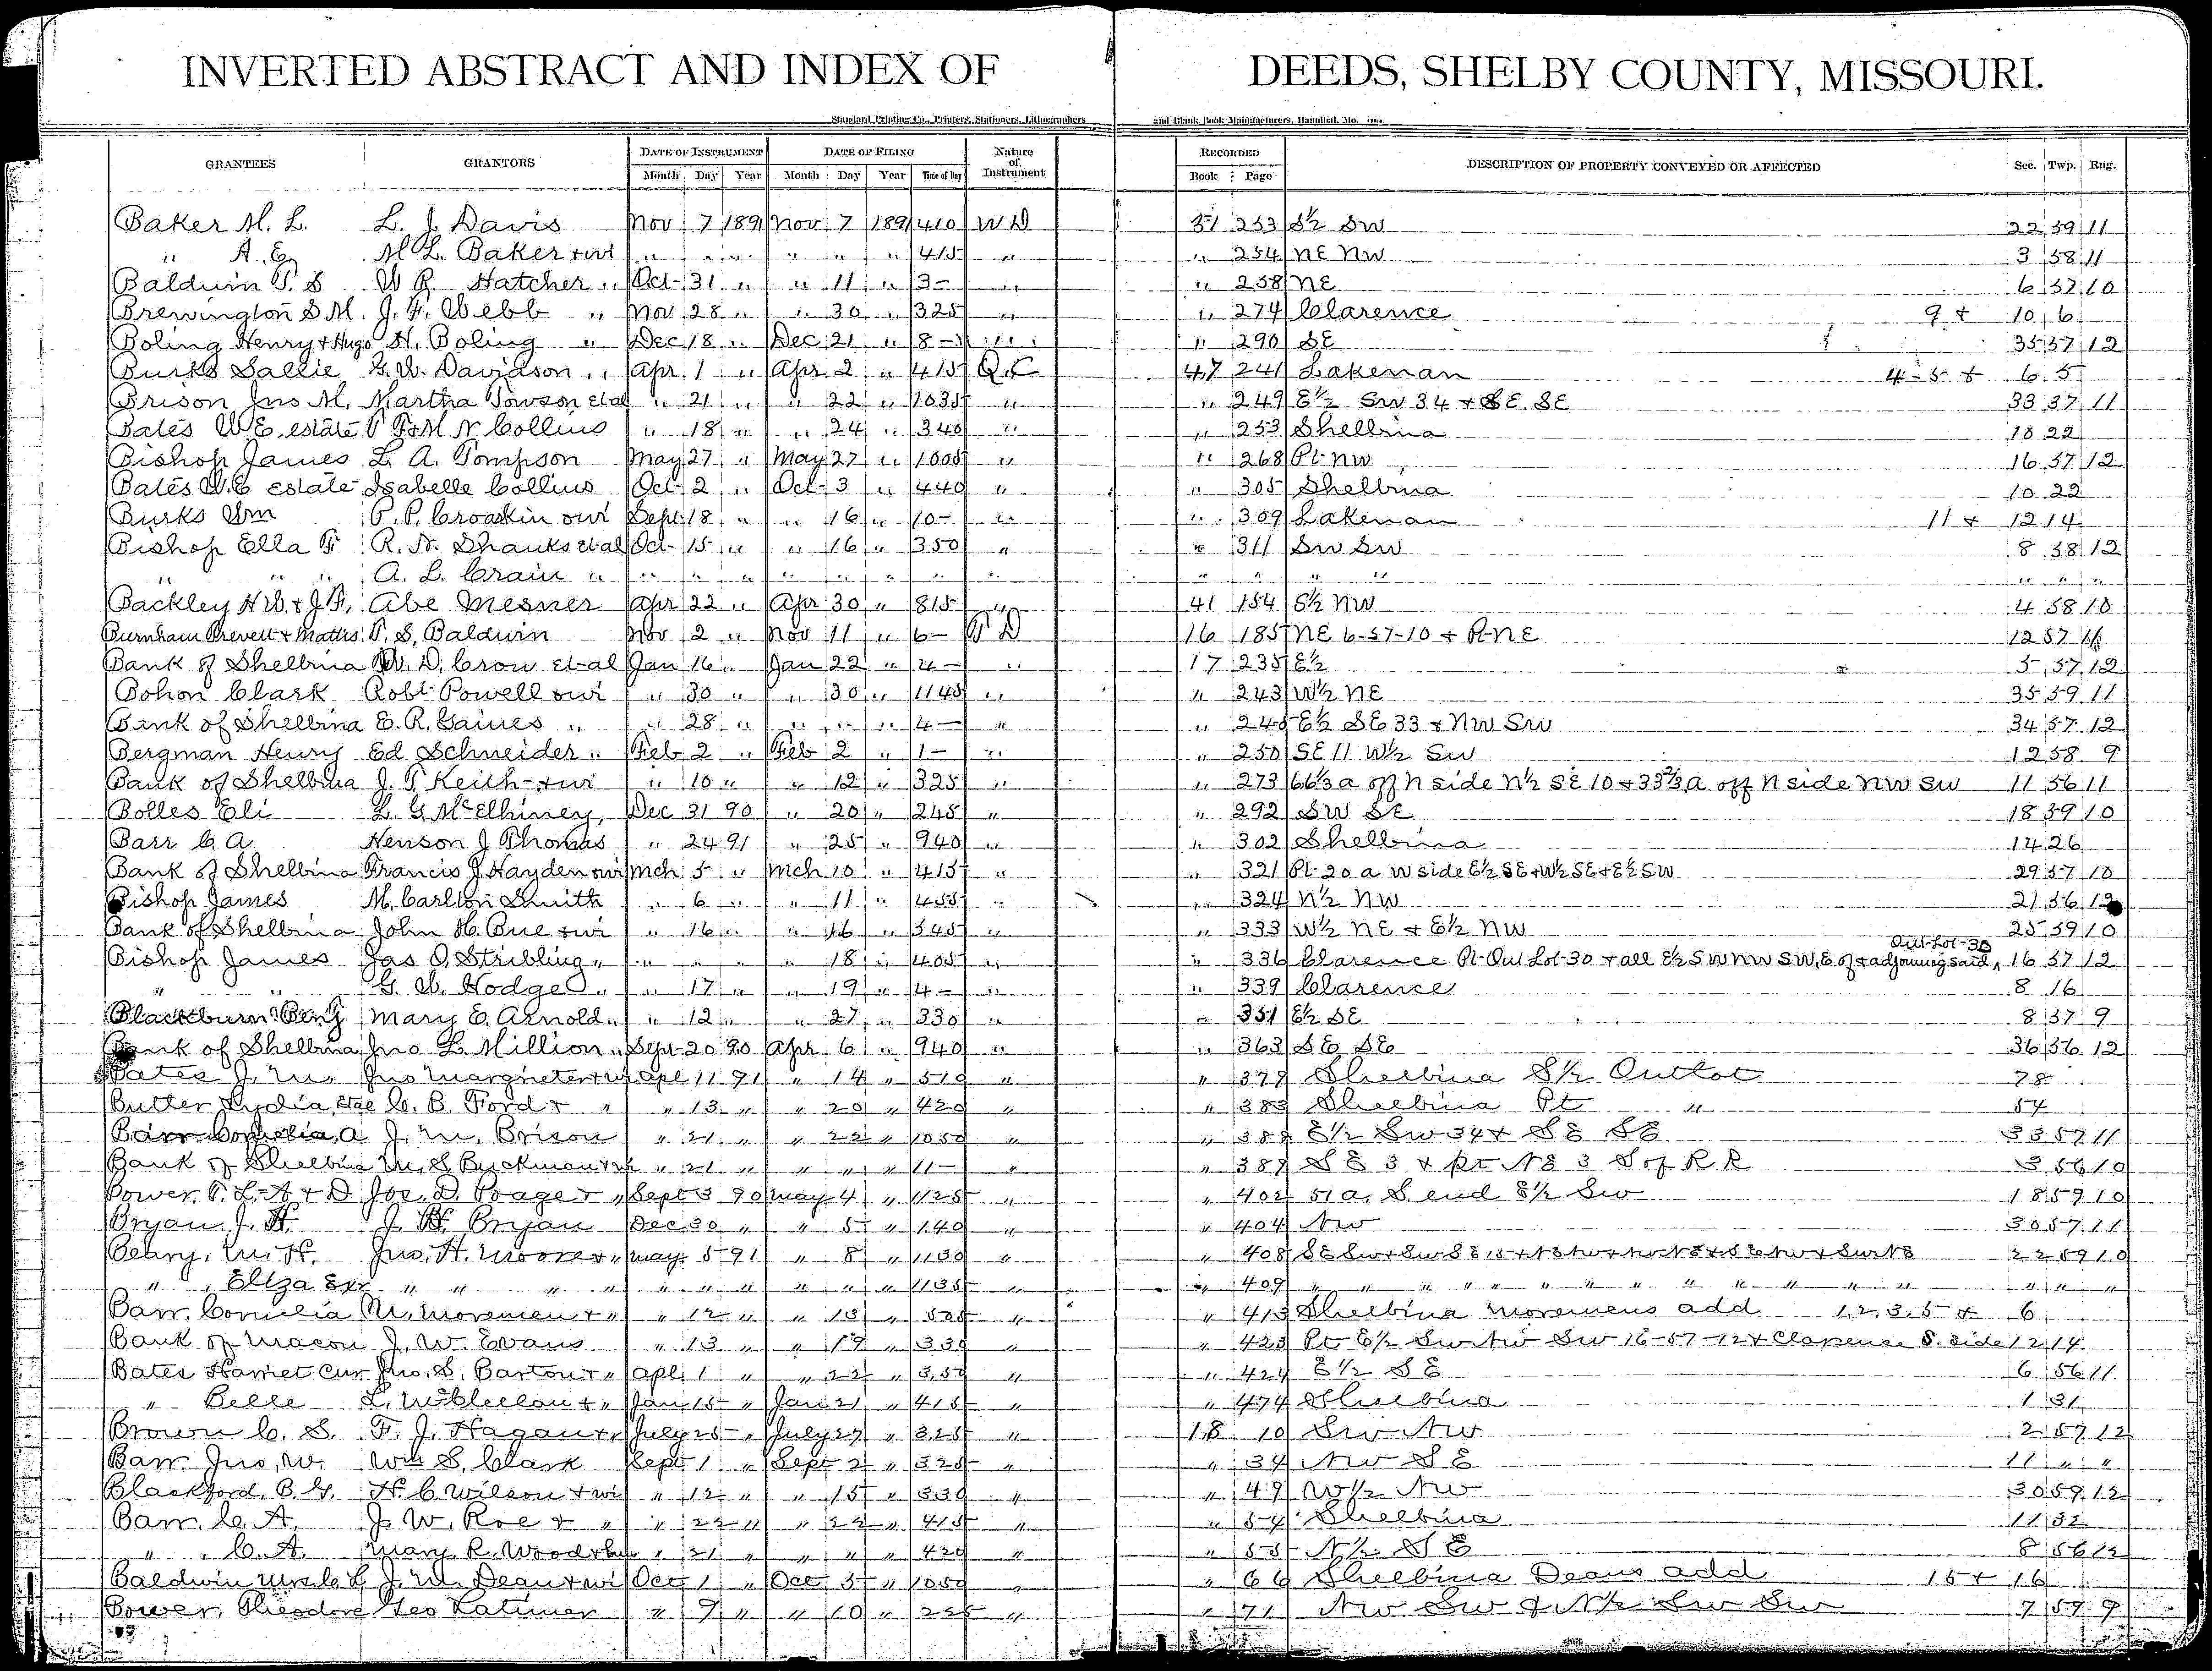 INVERTED ABSTRACT AND INDEX OF DEEDS, SHELBY COUNTY, MISSOURI.
Standard Printing Co., Printers, Stationers, Lithographers and Blank Book Manufacturers, Hannibal, Mo.
GRANTEES GRANTORS DATE OF INSTRUMENT DATE OF FILING Nature of Instrument RECORDED DESCRIPTION OF PROPERTY CONVEYED OR AFFECTED Sec. Twp. Rng.
Month Day Year Month Day Year Time of Day Book Page
Baker M. L. L. J. Davis Nov 7 1891 Nov 7 1891 410 W D 51 253 S½ SW 22 59 11
" A. E. M L. Baker + wi " " " " " " 415 " " 254 NE NW 3 58 11
Baldwin T. S W R Hatcher " Oct 31 " " 11 " 3- " " 258 NE 6 57 10
Brewington S M. J. F. Webb " Nov 28 " " 30 " 325 " " 274 Clarence 9 + 10 6
Boling Henry + Hugo H. Boling " Dec 18 " Dec 21 " 8- " " 290 SE 35 57 12
Burks Sallie G. W. Davidson " Apr 1 " Apr 2 " 415 Q C 47 241 Lakenan 4-5+ 6 5
Brison Jno M. Martha Towson et al " 21 " " 22 " 1035 " " 249 E½ SW 34 + SE SE 33 57 11
Bates W E. estate T F + M N Collins " 18 " " 24 " 340 " " 253 Shelbina 10 22
Bishop James L. A. Tompson May 27 " May 27 " 1005 " " 268 Pt NW 16 57 12
Bates W. E estate Isabelle Collins Oct 2 " Oct 3 " 440 " " 305 Shelbina 10 22
Burks Wm P. P. Croaskin + wi Sept 18 " " 16 " 10- " " 309 Lakenan 11 + 12 14
Bishop Ella F R. N. Shanks et al Oct 15 " " 16 " 350 " " 311 SW SW 8 58 12
" " " A. L. Crain " " " " " " " " " " " " " " " "
Packley H W. + J. F. Abe Mesner Apr 22 " Apr 30 " 815 " 41 154 S½ NW 4 58 10
Burnham Trevett + Mattis T. S. Baldwin Nov 2 " Nov 11 " 6- T D 16 185 NE 6-57-10 + Pt NE 12 57 11
Bank of Shelbina W. D. Crow et al Jan 16 " Jan 22 " 4- " 17 235 E½ 5 57 12
Bohon Clark Robt Powell + wi " 30 " " 30 " 1145 " " 243 W½ NE 35 59 11
Bank of Shelbina E. R. Gaines " " 28 " " " " 4- " " 245 E½ SE 33 + NW SW 34 57 12
Bergman Henry Ed Schneider " Feb 2 " Feb 2 " 1- " " 250 SE 11 W½ SW 12 58 9
Bank of Shelbina J. T Keith + wi " 10 " " 12 " 325 " " 273 66⅔ a off N side N½ SE 10 + 33⅔ a off N side NW SW 11 56 11
Bolles Eli L. G McElhiney, Dec 31 90 " 20 " 245 " " 292 SW SE 18 59 10
Barr C. A. Henson J Thomas " 24 91 " 25 " 940 " " 302 Shelbina 14 26
Bank of Shelbina Francis J. Hayden + wi Mch 5 " Mch 10 " 415 " " 321 Pt 20 a W side E½ SE + W½ SE + E½ SW 29 57 10
Bishop James M. Carlton Smith " 6 " " 11 " 455 " " 324 N½ NW 21 56 12
Bank of Shelbina John H. Bue + wi " 16 " " 16 " 345 " " 333 W½ NE + E½ NW 25 59 10
Bishop James Jas O. Stribling " " " " " 18 " 405 " " 336 Clarence Pt Out Lot-30 + all E½ SW NW SW, E of + adjoining said Out-Lot-30 16 57 12
" " G. W. Hodge " " 17 " " 19 " 4- " " 339 Clarence 8 16
Blackburn Benj Mary E. Arnold " " 12 " " 27 " 330 " " 351 E½ SE 8 57 9
Bank of Shelbina Jno L. Million " Sept 20 90 Apr 6 " 940 " " 363 SE SE 36 56 12
Bates J. M. Jno Margreter + wi Apl 11 91 " 14 " 510 " " 379 Shelbina S½ Outlot 78
Butler Lydia, etal C. B. Ford + " " 13 " " 20 " 420 " " 383 Shelbina Pt " 54
Barr Cornelia, A J. M. Brison " 21 " " 22 " 1050 " " 388 E½ SW 34 + SE SE 33 57 11
Bank of Shelbina M. S. Buckman + wi " 21 " " " " 11- " " 389 SE 3 + pt NE 3 S of R R 3 56 10
Power. T. L. A + D Jos. D. Poage + " Sept 3 90 May 4 " 1125 " " 402 51 a. S. end E½ SW 18 59 10
Bryan J. H. J. H. Bryan Dec 30 " " 5 " 140 " " 404 NW 30 57 11
Beary. M. H. Jno. H. Moore + " May 5 91 " 8 " 1130 " " 408 22 59 10
" Eliza Exr " " " " " " " " 1135 " " 409 " " " " " "
Barr. Cornelia M. Moremen + " " 12 " " 13 " 525 " " 413 Shelbina Moremens add 1, 2, 3, 5 + 6
Bank of Macon J. W. Evans " 13 " " 19 " 330 " " 423 Pt E½ SW NW SW 16-57-12 + Clarence S. side 12 14
Bates Harriet Cur Jno. S. Barton + " Apl. 1 " " 22 " 350 " " 424 E½ SE 6 56 11
" Belle L. McClellan + " Jan 15 " Jan 21 " 415 " " 474 Shelbina 1 31
Brown C. S. F. J. Hagan + " July 25 " July 27 " 325 " 18 10 SW NW 2 57 12
Barr. Jno. W. Wm S. Clark Sept 1 " Sept 2 " 325 " " 34 NW SE 11 " "
Blackford. B. G. H. C. Wilson + wi " 12 " " 15 " 330 " " 49 W½ NW 30 59 12
Barr. C. A. J. W. Roe + " " 22 " " 22 " 415 " " 54 Shelbina 11 32
" C. A. Mary R. Wood + hus " 21 " " " " 420 " " 55 N½ SE 8 56 12
Baldwin Mrs. C. L J. M. Dean + wi Oct 1 " Oct 5 " 1050 " " 66 Shelbina Deans add 15 + 16
Power. Theodore Geo Latimer " 9 " " 10 " 225 " " 71 NW SW + N½ SW SW 7 59 9